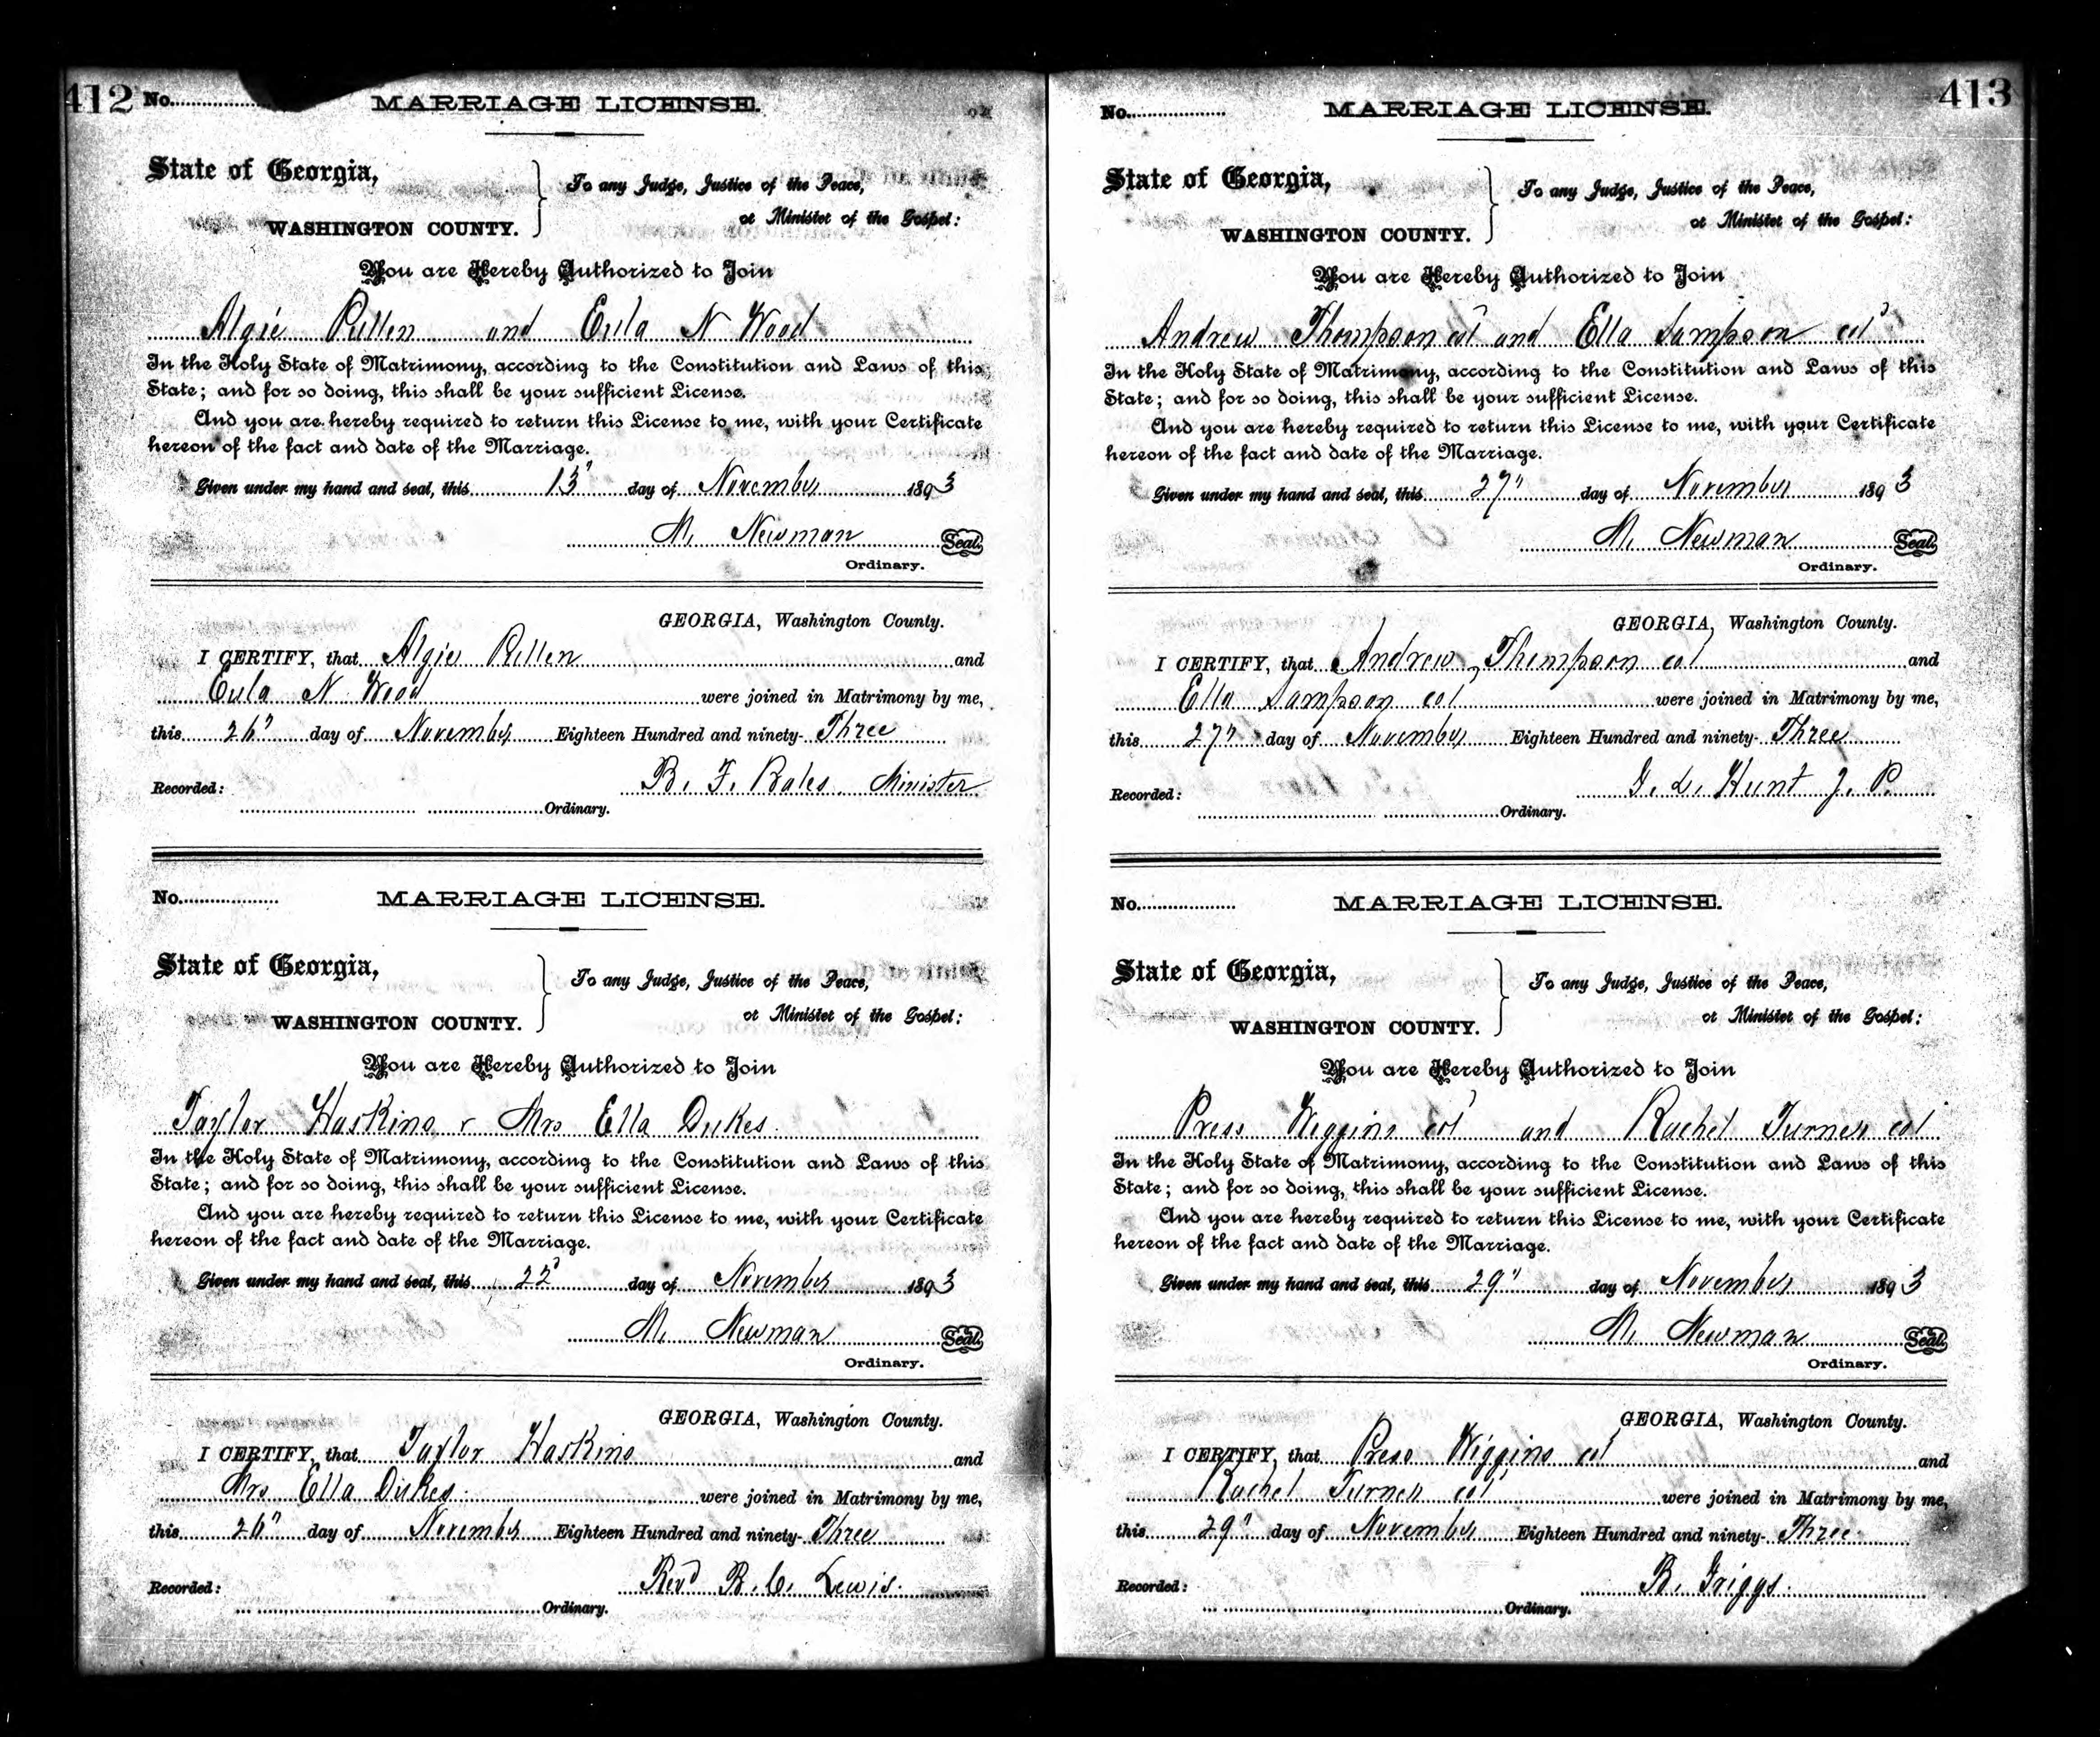 412 No. MARRIAGE LICENSE.
State of Georgia,
To any Judge, Justice of the Peace,
or Minister of the Gospel:
WASHINGTON COUNTY.
You are Hereby Authorized to Join
Algie Pullen and Eula N Wood
In the Holy State of Matrimony, according to the Constitution and Laws of this
State; and for so doing, this shall be your sufficient License.
And you are hereby required to return this License to me, with your Certificate
hereon of the fact and date of the Marriage.
Given under my hand and seal, this 13" day of November 1893
M. Newman Seal.
Ordinary.
GEORGIA, Washington County.
I CERTIFY, that Algie Pullen and
Eula N Wood were joined in Matrimony by me,
this 26" day of November Eighteen Hundred and ninety-Three
B. F. Bales Minister
Recorded:
Ordinary.
No. MARRIAGE LICENSE.
State of Georgia,
To any Judge, Justice of the Peace,
or Minister of the Gospel:
WASHINGTON COUNTY.
You are Hereby Authorized to Join
Taylor Haskins & Mrs Ella Dukes
In the Holy State of Matrimony, according to the Constitution and Laws of this
State; and for so doing, this shall be your sufficient License.
And you are hereby required to return this License to me, with your Certificate
hereon of the fact and date of the Marriage.
Given under my hand and seal, this 22" day of November 1893
M. Newman Seal.
Ordinary.
GEORGIA, Washington County.
I CERTIFY, that Taylor Haskins and
Mrs Ella Dukes were joined in Matrimony by me,
this 26" day of November Eighteen Hundred and ninety-Three
Revd B. C. Lewis.
Recorded:
Ordinary.
No. MARRIAGE LICENSE. 413
State of Georgia,
To any Judge, Justice of the Peace,
or Minister of the Gospel:
WASHINGTON COUNTY.
You are Hereby Authorized to Join
Andrew Thompson col and Ella Sampson col
In the Holy State of Matrimony, according to the Constitution and Laws of this
State; and for so doing, this shall be your sufficient License.
And you are hereby required to return this License to me, with your Certificate
hereon of the fact and date of the Marriage.
Given under my hand and seal, this 27" day of November 1893
M. Newman Seal.
Ordinary.
GEORGIA, Washington County.
I CERTIFY, that Andrew Thompson col and
Ella Sampson col were joined in Matrimony by me,
this 27" day of November Eighteen Hundred and ninety-Three
G. L. Hunt J. P.
Recorded:
Ordinary.
No. MARRIAGE LICENSE.
State of Georgia,
To any Judge, Justice of the Peace,
or Minister of the Gospel:
WASHINGTON COUNTY.
You are Hereby Authorized to Join
Press Wiggins col and Rachel Turner col
In the Holy State of Matrimony, according to the Constitution and Laws of this
State; and for so doing, this shall be your sufficient License.
And you are hereby required to return this License to me, with your Certificate
hereon of the fact and date of the Marriage.
Given under my hand and seal, this 29" day of November 1893
M. Newman Seal.
Ordinary.
GEORGIA, Washington County.
I CERTIFY, that Press Wiggins col and
Rachel Turner col were joined in Matrimony by me,
this 29" day of November Eighteen Hundred and ninety-Three
B. Griggs.
Recorded:
Ordinary.